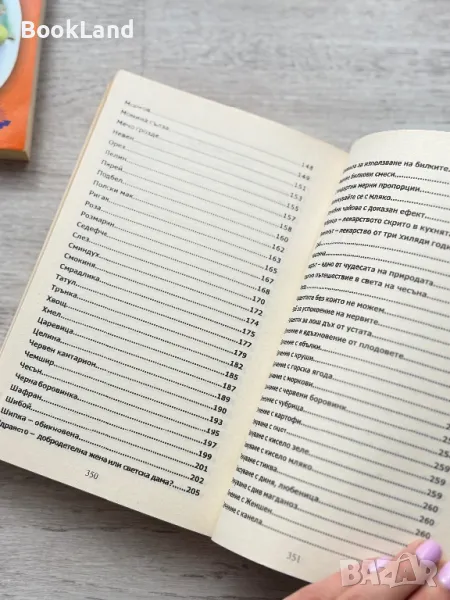 BookLand
Момина сълза
Мечо грозде
Невен
Орех 148
Пелин 149
Пирей 151
Подбел 153
Полски мак 155
Ригак 157
Роза 158
Розмарин 160
Седефче 162
Слез 163
Сминдух 165
Смокиня 167
Смрадлика 168
Татул 170
Трънка 172
Хвощ 174
Хмел 175
Царевица 177
Целина 179
Червен кантарион 182
Чемшир 185
Чесън 187
Черна боровинка 189
Шафран 190
Шибой 193
Шипка – обикновена 195
197
199
201
202
Здравето – добродетелна жена или светска дама? 205
350
за използване на билките
билкови смеси
мерни пропорции
с мляко
чайове с доказан ефект
лекарството скрито в кухнята
– лекарство от три хиляди години
– едно от чудесата на природата
пътешествие в света на чесъна
без които не можем
за успокоение на нервите
за лош дъх от устата
вдъхновение от плодовете
с ябълки
с круши
с горска ягода
с моркови
с червени боровинки
с чубрица
с картофи
с оцет 25
с кисело зеле 258
с кисело мляко 259
с тиква 259
с диня, любеница 259
с див магданоз 260
с Женшен 260
с канела
351
bazar.bg